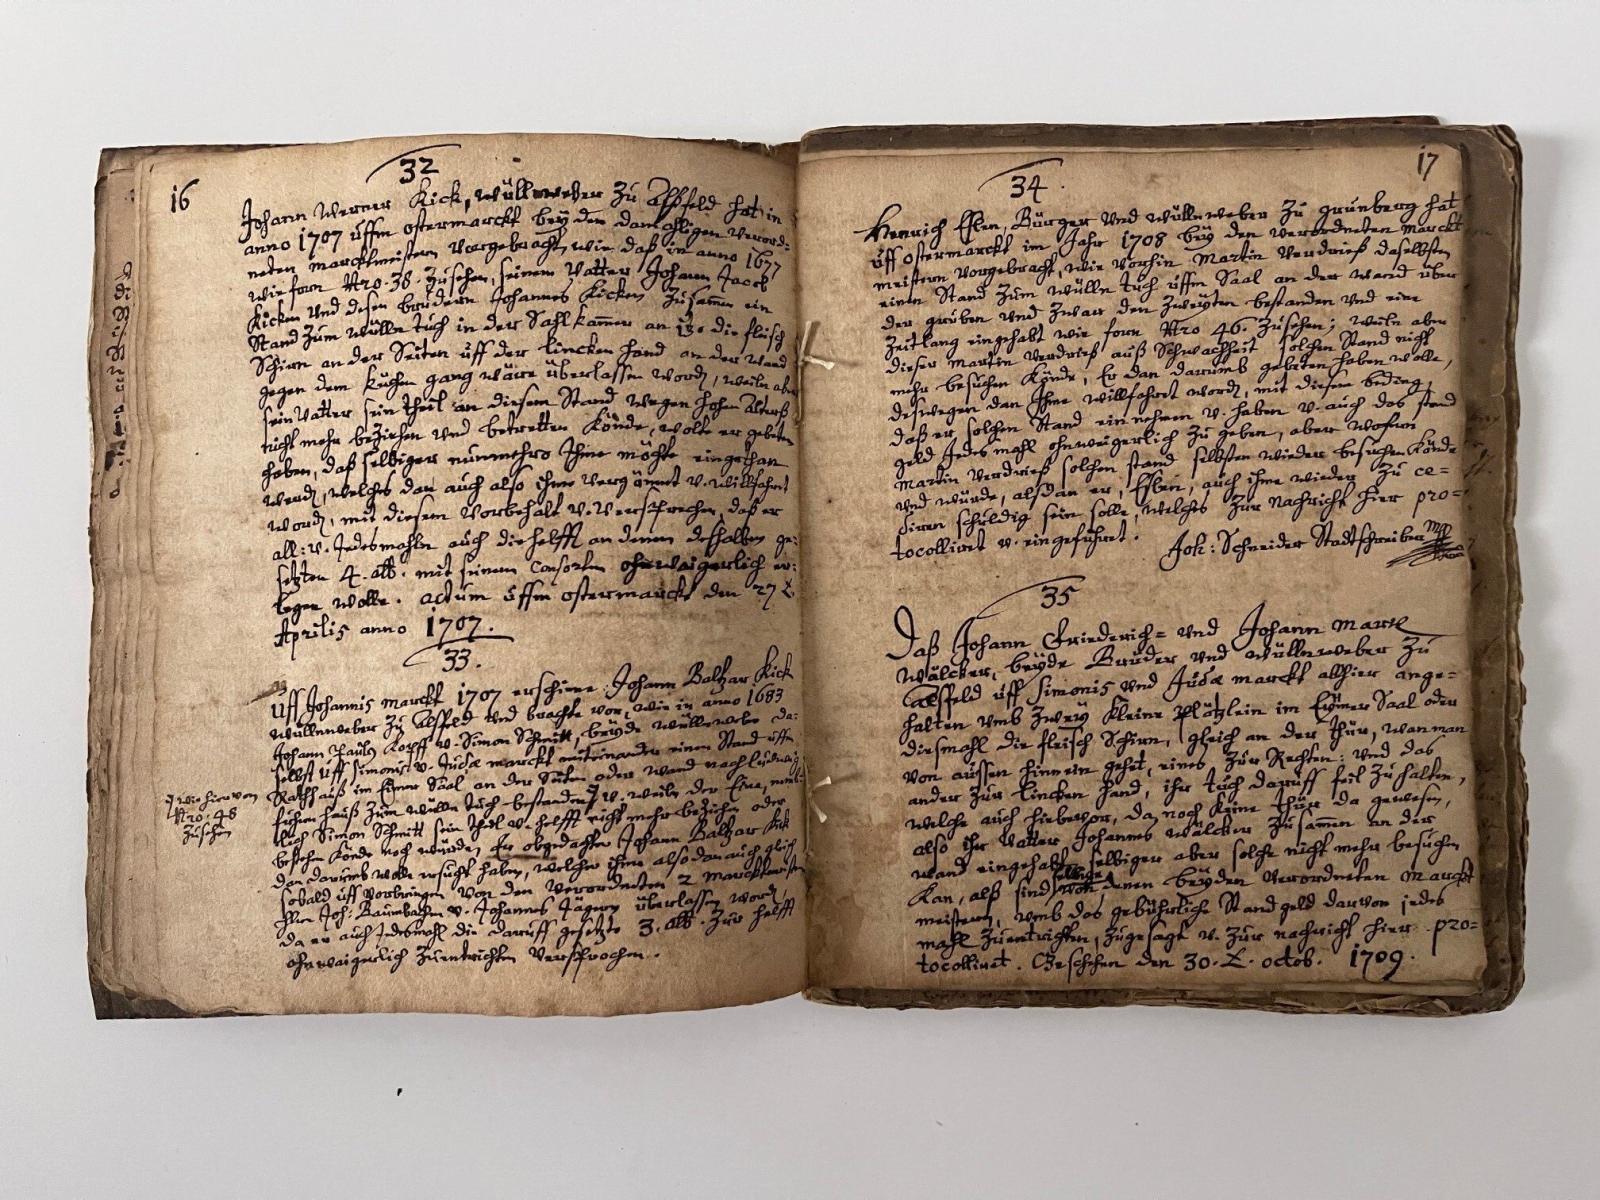 16
32
Johann Werner Kick, wüllenweber zu Alßfeld hat in
anno 1707 uffm ostermarckt bey den damahligen verord=
neten marcktmeistern vorgebracht, wie daß in anno 1677
wie forn Nro. 38. zusehen, seinem Vatter Johann Jacob
Kicken und deßen brudern Johannes Kicken zusamen ein
Stand zum wüllen tuch in der Sahlkamer an die fleisch
Schirn an der Seiten uff der lincken hand an der wand
gegen dem Kuchen gang wäre überlassen word, weiln aber
sein vatter sein theil an diesem Stand wegen hohen Alterß
nicht mehr beziehen und betretten Könde, wolte er gebeten
haben, daß selbiger nunmehro Ihme möchte eingethan
werd, welches dan auch also ihme vergönnet v. willfahret
word, mit diesem Vorbehalt v. versprechen, daß er
all: v. Jedesmahln auch die helfft an denen deßhalben ge=
setzten 4. alb. mit seinem Consorten ohnwaigerlich er=
legen wolle. actum uffm ostermarckt den 27
Aprilis anno 1707.
33.
Uff Johannis marckt 1707 erschiene Johann Baltzar Kick
wüllenweber zu Alßfeld und brachte vor, wie in anno 1683
Johann Paulus Kopff v. Simon Schmitt, beyde wüllenweber da=
selbst uff Simonis v. Judæ marckt miteinander einen Stand uffm
Rathhauß im Eymer Saal an der Seiten oder wand nach
hauß zum wüllen tuch bestanden, v. weiln der Eine, nem=
lich Simon Schmitt sein theil v. helfft nicht mehr beziehen oder
besehen Könde noch würde, Er obgedachter Johann Baltzar Kick
dan darumb wolle ersucht haben, welcher ihme also dan auch gleich
sobald uff vorbringen von den verordneten 2 marcktmeistern
Joh: Baumbachen v. Johannes Jägern überlassen word,
da er auch Jedesmahl die daruff gesetzte 3. alb. zur helfft
ohnwaigerlich zuentrichten versprochen.
wie hievon
Nro. 48
zusehen
17
34.
Henrich Eßlen, Bürger und wüllenweber zu grünberg hat
uff ostermarckt im Jahr 1708 bey den verordneten marckt
meistern vorgebracht, wie vorhin Martin Verdrieß daselbsten
einen Stand zum wüllen tuch uffm Saal an der wand über
der gruben und zwar den zweyten bestanden und eine
Zeitlang eingehabt wie forn Nro 46. zusehen; weiln aber
dieser Martin Verdrieß auß Schwachheit solchen Stand nicht
mehr besuchen Könde, Er dan darumb gebeten haben wolle,
deßwegen dan Ihme willfahret word, mit diesem beding,
daß er solchen Stand einnehmen v. haben v. auch das stand
geld Jedesmahl ohnweigerlich zu geben, aber wofern
Martin Verdrieß solchen stand selbsten wieder besuchen Könde
und würde, alßdan er, Eßlen, auch ihme wieder zu ce=
diren schuldig sein solle, welches zur nachricht hier pro=
tocolliret v. eingeführet.
Joh: Schneider Stadtschreiber mpp
35
Daß Johann Friederich= und Johann Marx
Wälcker, beyde Brüder und wüllenweber zu
Alßfeld uff Simonis und Judæ marckt allhier ange=
halten umb zwey kleine Plätzlein im Eymer Saal oder
dießmahl die fleisch Schirn, gleich an der thür, wan man
von aussen hinnein gehet, eines zur Rechten: und das
ander zur lincken hand, ihr tuch daruff feil zu halten,
welche auch hiebevor, da noch keine thür da gewesen,
also ihr vatter Johannes Wälcker zusamen an der
wand eingehabt, selbiger aber solche nicht mehr besuchen
Kan, alß sind selbige von denen beyden verordneten Marckt
meistern, umb das gebührliche Standgeld darvon jedes
mahl zuentrichten, zugesagt v. zur nachricht hier pro=
tocolliret. Geschehen den 30. octob. 1709.